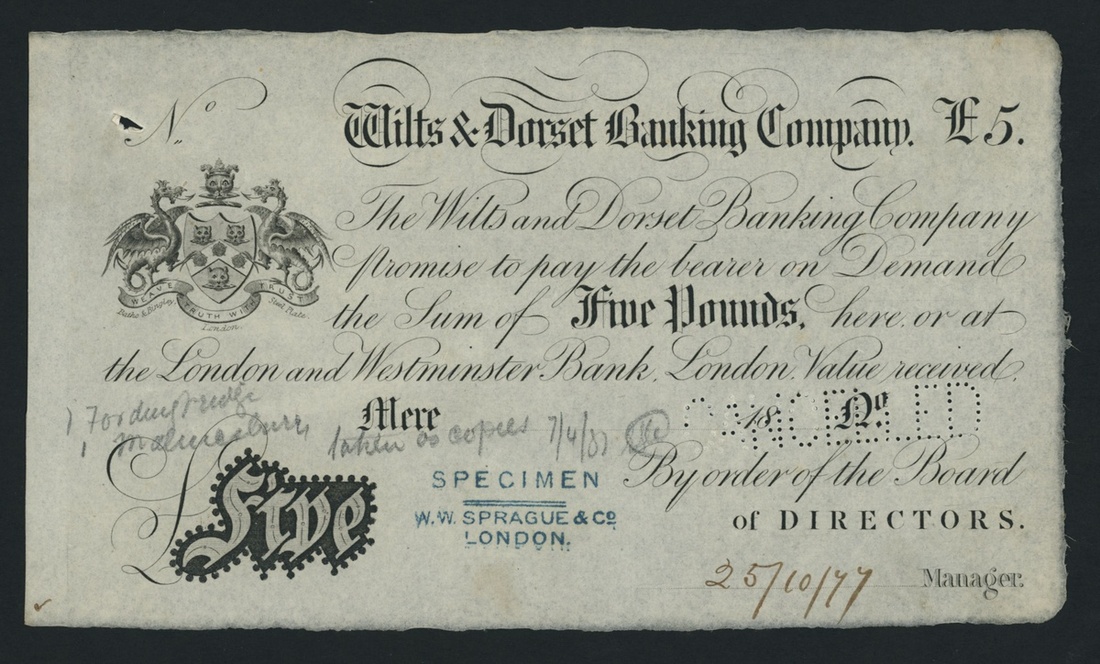 No.
Wilts & Dorset Banking Company. £5.
The Wilts and Dorset Banking Company
Promise to pay the bearer on Demand
the Sum of Five Pounds, here, or at
the London and Westminster Bank, London. Value received.
WEAVE TRUTH WITH TRUST
Batho & Bingley, Steel Plate.
London.
1 Fordingbridge
1 Malmesbury,
Mere 18 No.
CANCELLED
taken as copies 7/4/81
By order of the Board
of DIRECTORS.
£Five
SPECIMEN
W.W. SPRAGUE & Co
LONDON.
25/10/77 Manager.